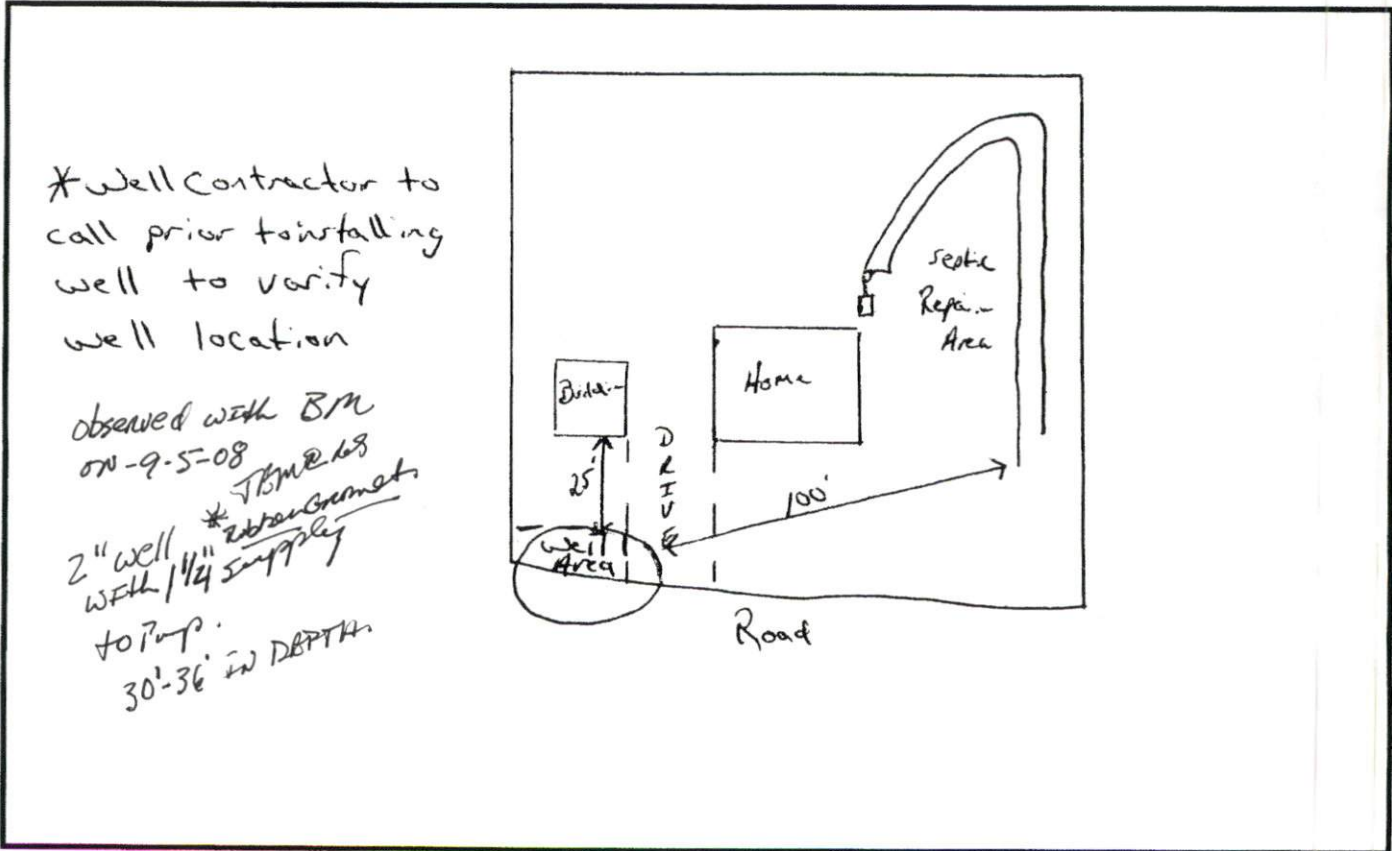 * Well Contractor to
call prior to installing
well to varify
well location
observed with BM
ON - 9-5-08
2" well *
with 1 1/4" supply
to Pump.
30'-36' IN DEPTH.
Building
25'
DRIVE
Home
Septic
Repair
Area
100'
Well
Area
Road